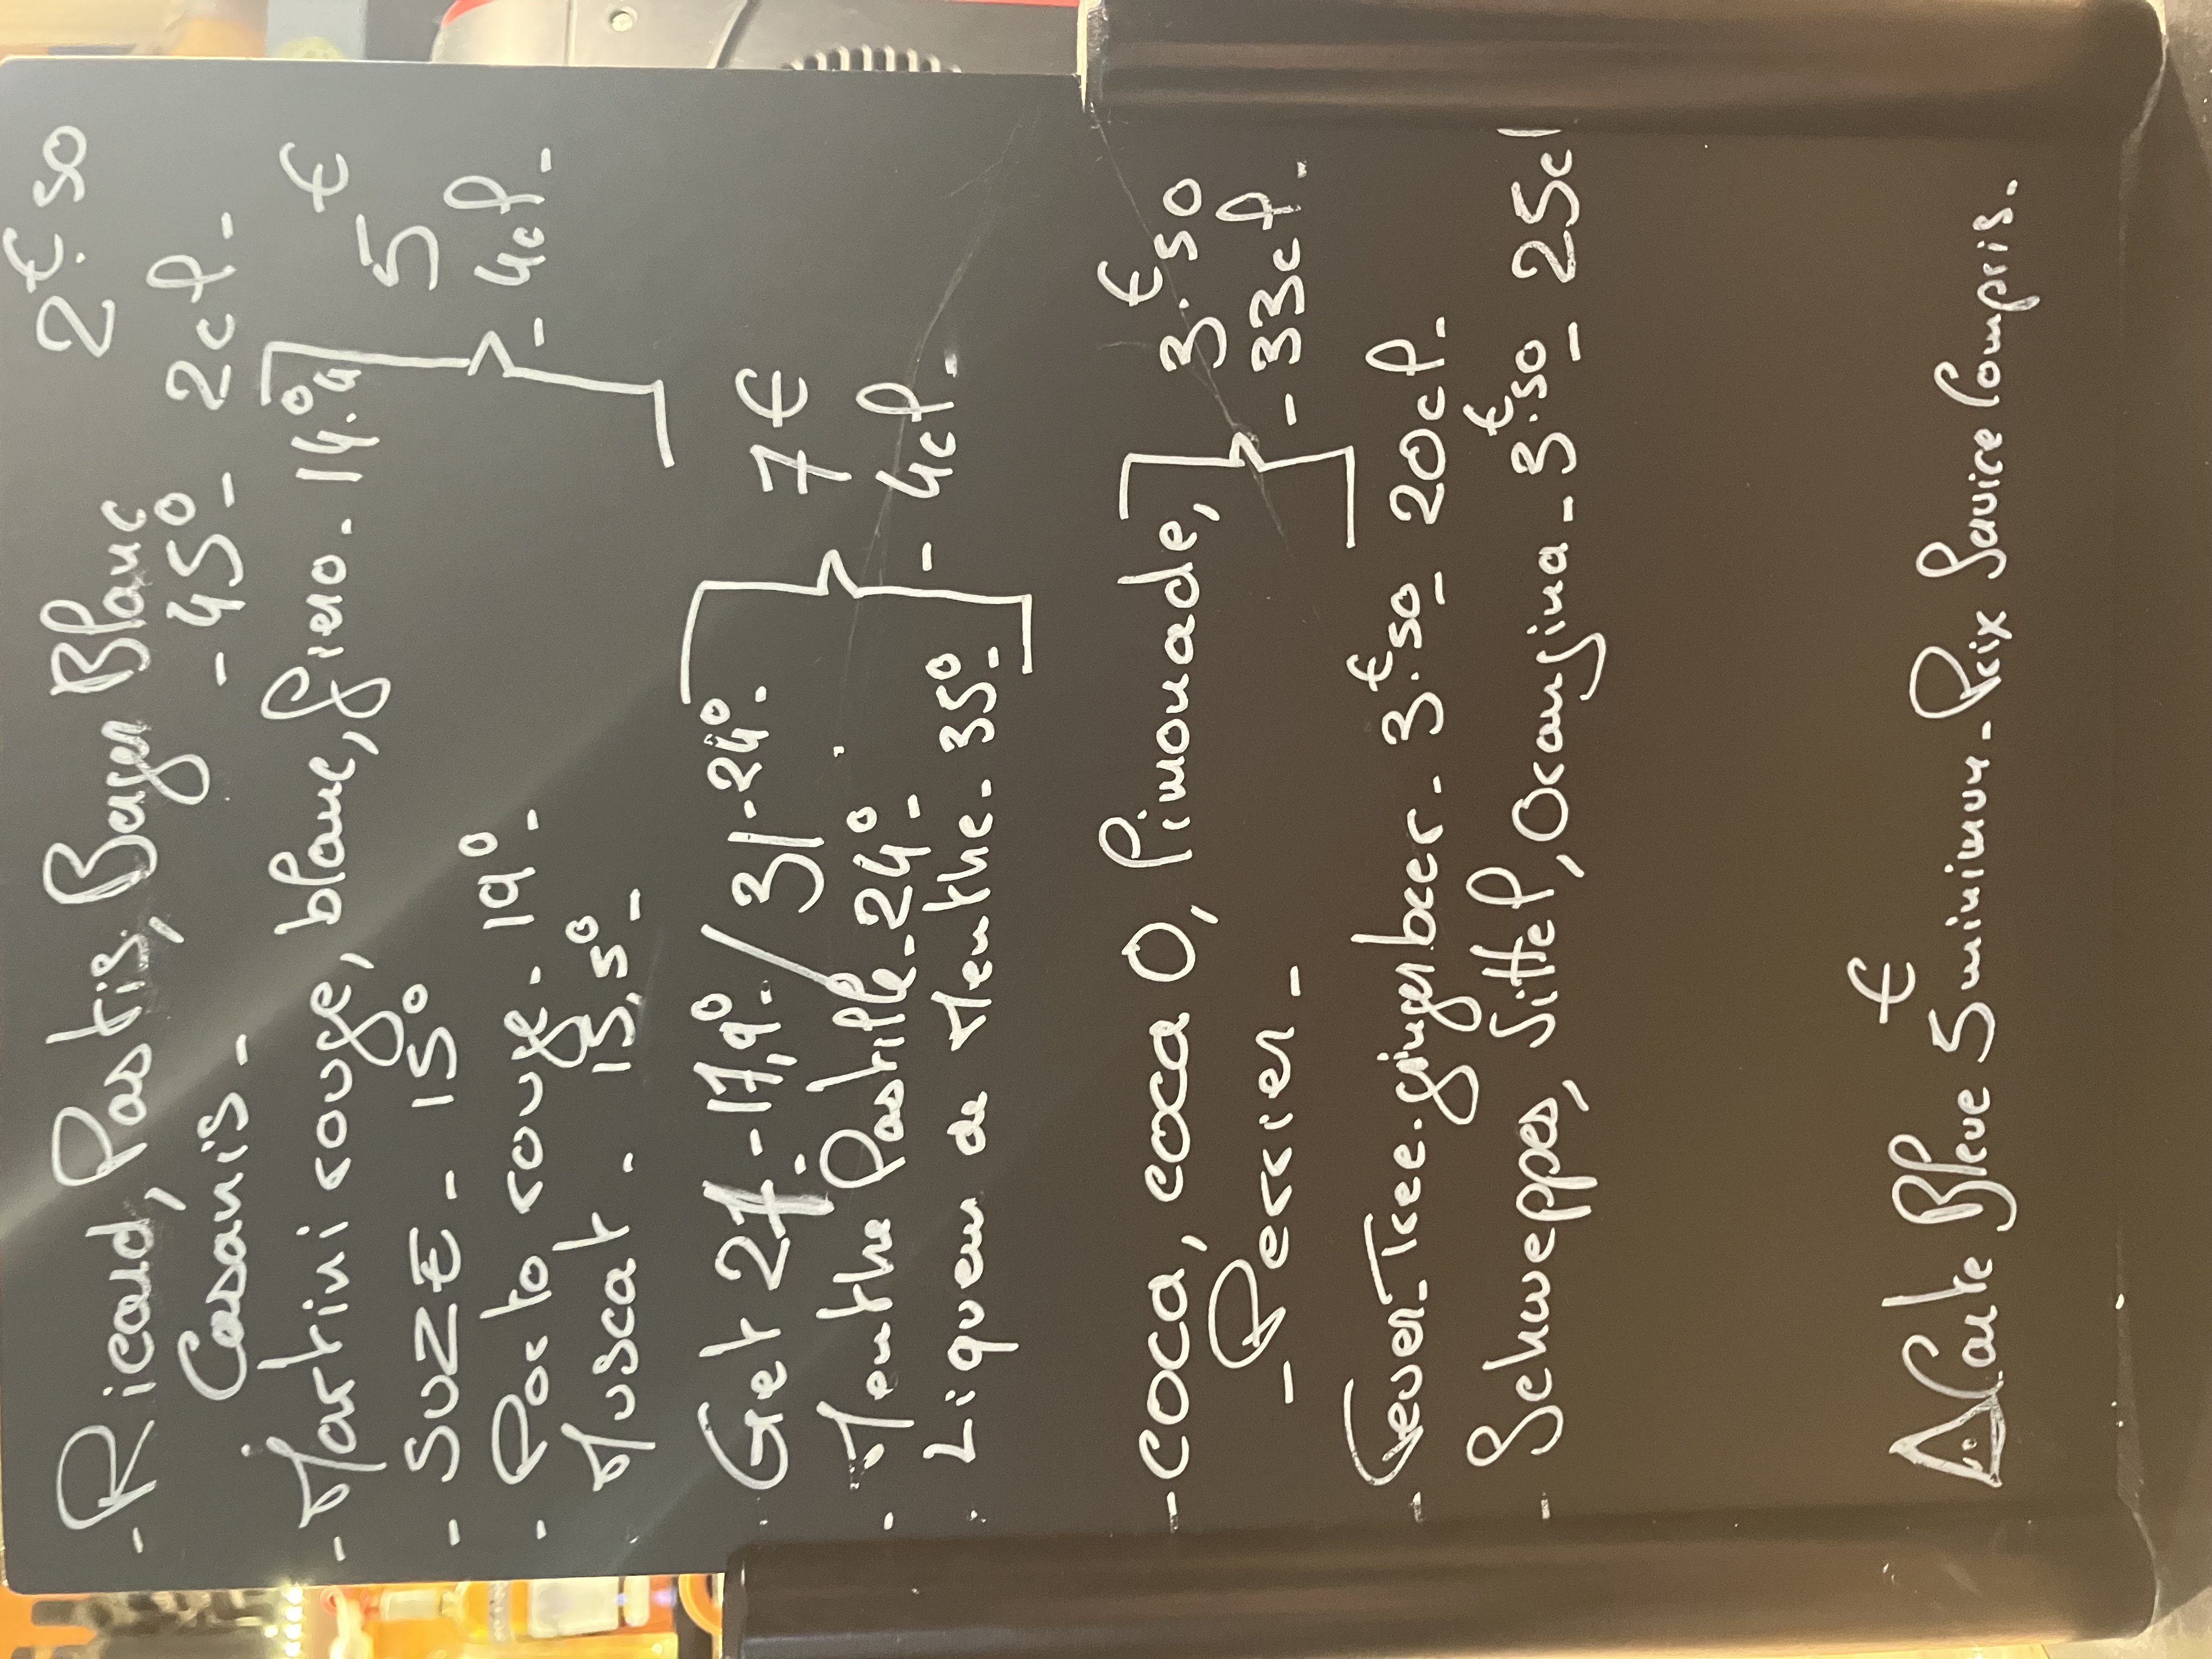 - Ricard, Pastis, Berger Blanc 2€.50
Casanis - - 45° - 2cl -
- Martini rouge, blanc, fiero. 14.4° 5€
- SUZE - 15° - 4cl -
- Porto rouge - 19° -
Muscat - 15,5° -
- Get 27 - 17,9° - / 31 - 24°. 7€
- Menthe Pastille - 24° - - 4cl -
- Liqueur de Menthe - 35° -
- COCA, COCA 0, limonade, 3€.50
- Perrier - - 33cl -
- Fever-Tree. ginger beer - 3€.50 - 20cl -
- Schweppes, Sittel, Orangina - 3€.50 - 25cl
⚠ Carte Bleue 5€ minimum - Prix Service Compris.